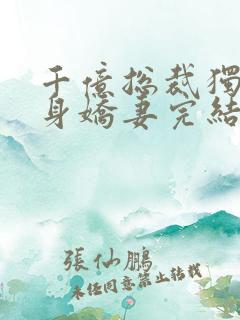 千億總裁獨
身嬌妻完結
張仙鵬
未經同意禁止轉載